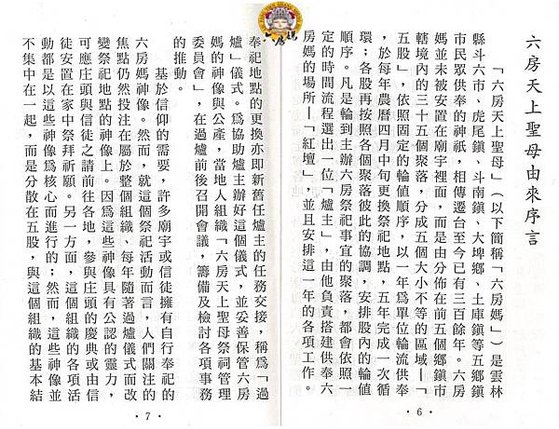 六房天上聖母由來序言
「六房天上聖母」（以下簡稱「六房媽」）是雲林
縣斗六市、虎尾鎮、斗南鎮、大埤鄉、土庫鎮等五鄉鎮
市民眾供奉的神祇，相傳遷台至今已有三百餘年。六房
媽並未被安置在廟宇裡面，而是由分佈在前五個鄉鎮市
轄境內的三十五個聚落，分成五個大小不等的區域—「
五股」，依照固定的輪值順序，以一年為單位輪流供奉
，於每年農曆四月中旬更換祭祀地點，五年完成一次循
環；各股再按照各個聚落彼此的協調，安排股內的輪值
順序。凡是輪到主辦六房祭祀事宜的聚落，都會依照一
定的時間流程選出一位「爐主」，由他負責搭建供奉六
房媽的場所—「紅壇」，並且安排這一年的各項工作。
·6·
奉祀地點的更換亦即新舊任爐主的任務交接，稱為「過
爐」儀式。為協助爐主辦好這個儀式，並妥善保管六房
媽的神像與公產，當地人組織「六房天上聖母祭祠管理
委員會」，在過爐前後召開會議，籌備及檢討各項事務
的推動。
基於信仰的需要，許多廟宇或信徒擁有自行奉祀的
六房媽神像。然而，就這個祭祀活動而言，人們關注的
焦點仍然投注在屬於整個組織、每年隨著過爐儀式而改
變祭祀地點的神像上。因為這些神像具有公認的靈力，
可應庄頭與信徒之請前往各地，參與庄頭的慶典或由信
徒安置在家中祭拜祈願。另一方面，這個組織的各項活
動都是以這些神像為核心而進行的；然而，這些神像並
不集中在一起，而是分散在五股，與這個組織的基本結
·7·